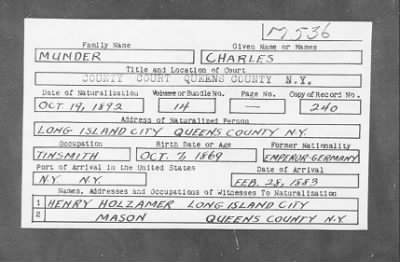 M 536
Family Name Given Name or Names
MUNDER CHARLES
Title and Location of Court
COUNTY COURT QUEENS COUNTY N.Y.
Date of Naturalization Volume or Bundle No. Page No. Copy of Record No.
OCT. 19, 1892 14 — 240
Address of Naturalized Person
LONG ISLAND CITY QUEENS COUNTY N.Y.
Occupation Birth Date or Age Former Nationality
TINSMITH OCT. 7, 1869 EMPEROR-GERMANY
Port of Arrival in the United States Date of Arrival
N.Y. N.Y. FEB. 28, 1883
Names, Addresses and Occupations of Witnesses To Naturalization
1 HENRY HOLZAMER LONG ISLAND CITY
2 MASON QUEENS COUNTY N.Y.